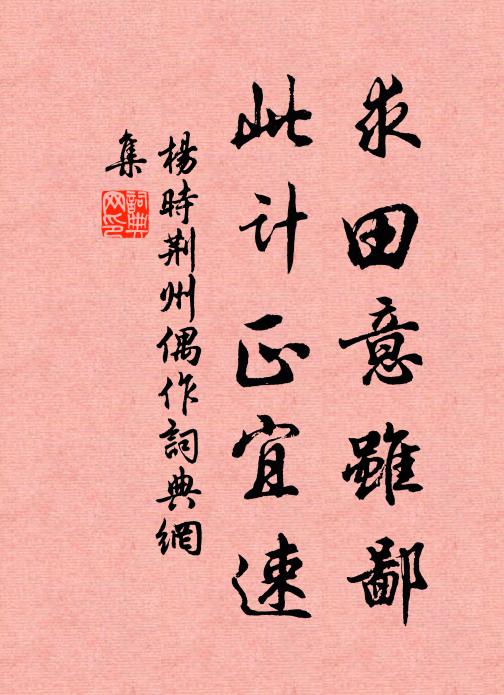 求田意雖鄙
此计正宜速
楊時荆州偶作詞典網
集
詞典
网印